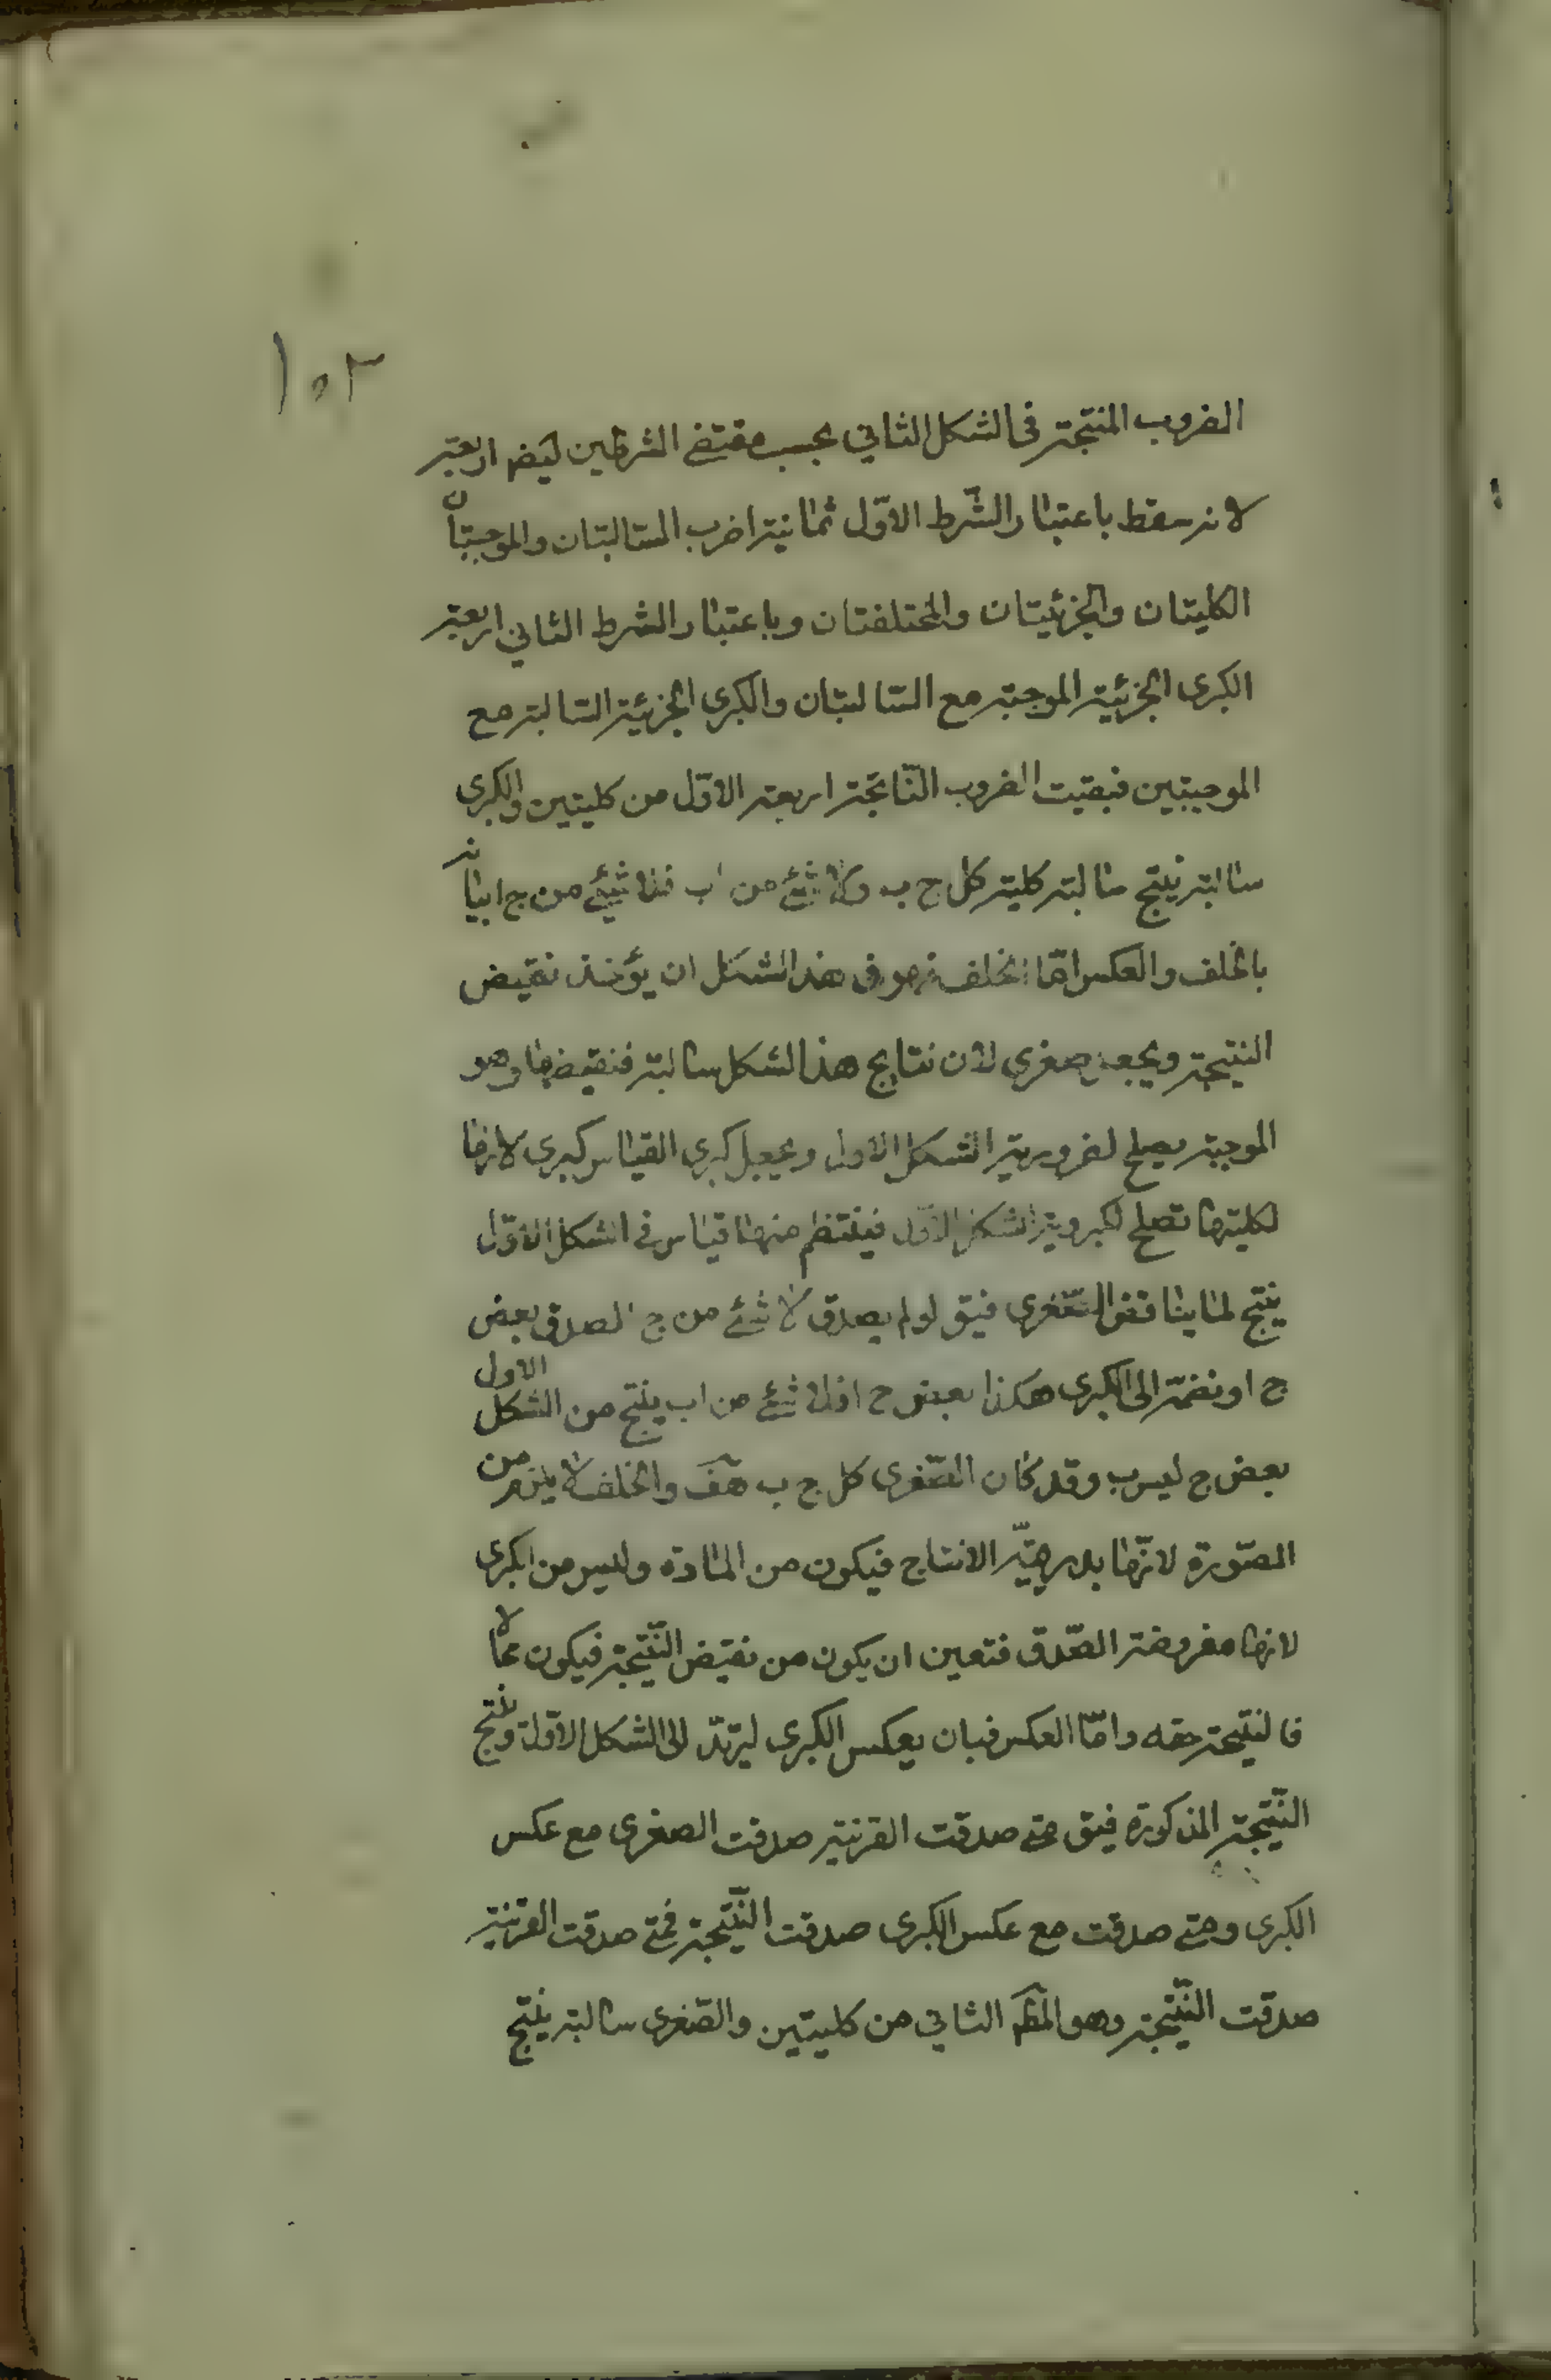 ١٠٢
الضروب المنتجة فى الشكل الثاني بحسب مقتضى الشرطين ايضا اربعة
لانه سقط باعتبار الشّرط الاوّل ثمانية اضرب السّالبتان والموجبتان
الكليتان والجزئيتان والمختلفتان وباعتبار الشرط الثاني اربعة
الكبرى الجزئية الموجبة مع السّالبتان والكبرى الجزئية السّالبة مع
الموجبتين فبقيت الضروب النّاتجة اربعة الاوّل من كليتين والكبرى
سالبة ينتج سالبة كلية كل ج ب ولا شئ من اب فلا شئ من ج ا بيانه
بالخلف والعكس امّا الخلف فهو فى هذا الشكل ان يؤخذ نقيض
النتيجة ويجعل صغرى لان نتايج هذا الشكل سالبة فنقيضها وهو
الموجبة يصلح لصغروية الشكل الاول ويجعل كبرى القياس كبرى لانها
لكليتها تصلح لكبروية الشكل الاوّل فينتظم منهما قياس فى الشكل الاوّل
ينتج لما يناقض الصّغرى فيق لو لم يصدق لا شئ من ج ا لصدق بعض
ج ا ونضمّه الى الكبرى هكذا بعض ج ا ولا شئ من اب ينتج من الشكل الاول
بعض ج ليس ب وقد كان الصّغرى كل ج ب هف والخلف لا يلزم من
الصّورة لانّها بديهيّة الانتاج فيكون من المادة وليس من الكبرى
لانها مفروضة الصّدق فتعين ان يكون من نقيض النّتيجة فيكون محالا
فالنتيجة حقه وامّا العكس فبان يعكس الكبرى ليرتدّ الى الشكل الاوّل وينتج
النّتيجة المذكورة فيق متى صدقت القرينة صدقت الصغرى مع عكس
الكبرى ومتى صدقت مع عكس الكبرى صدقت النّتيجة فمتى صدقت القرينة
صدقت النّتيجة وهو المط الثاني من كليتين والصّغرى سالبة ينتج